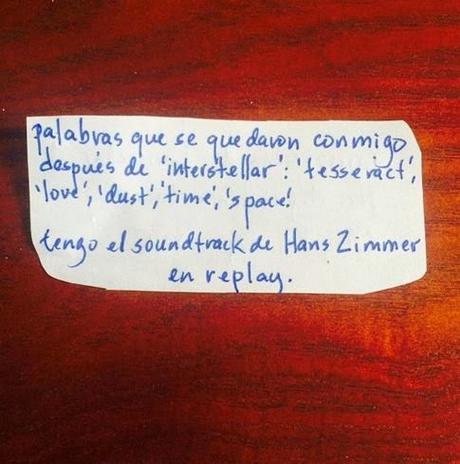 palabras que se quedaron conmigo
después de 'interstellar': 'tesseract',
'love', 'dust', 'time', 'space'.
tengo el soundtrack de Hans Zimmer
en replay.